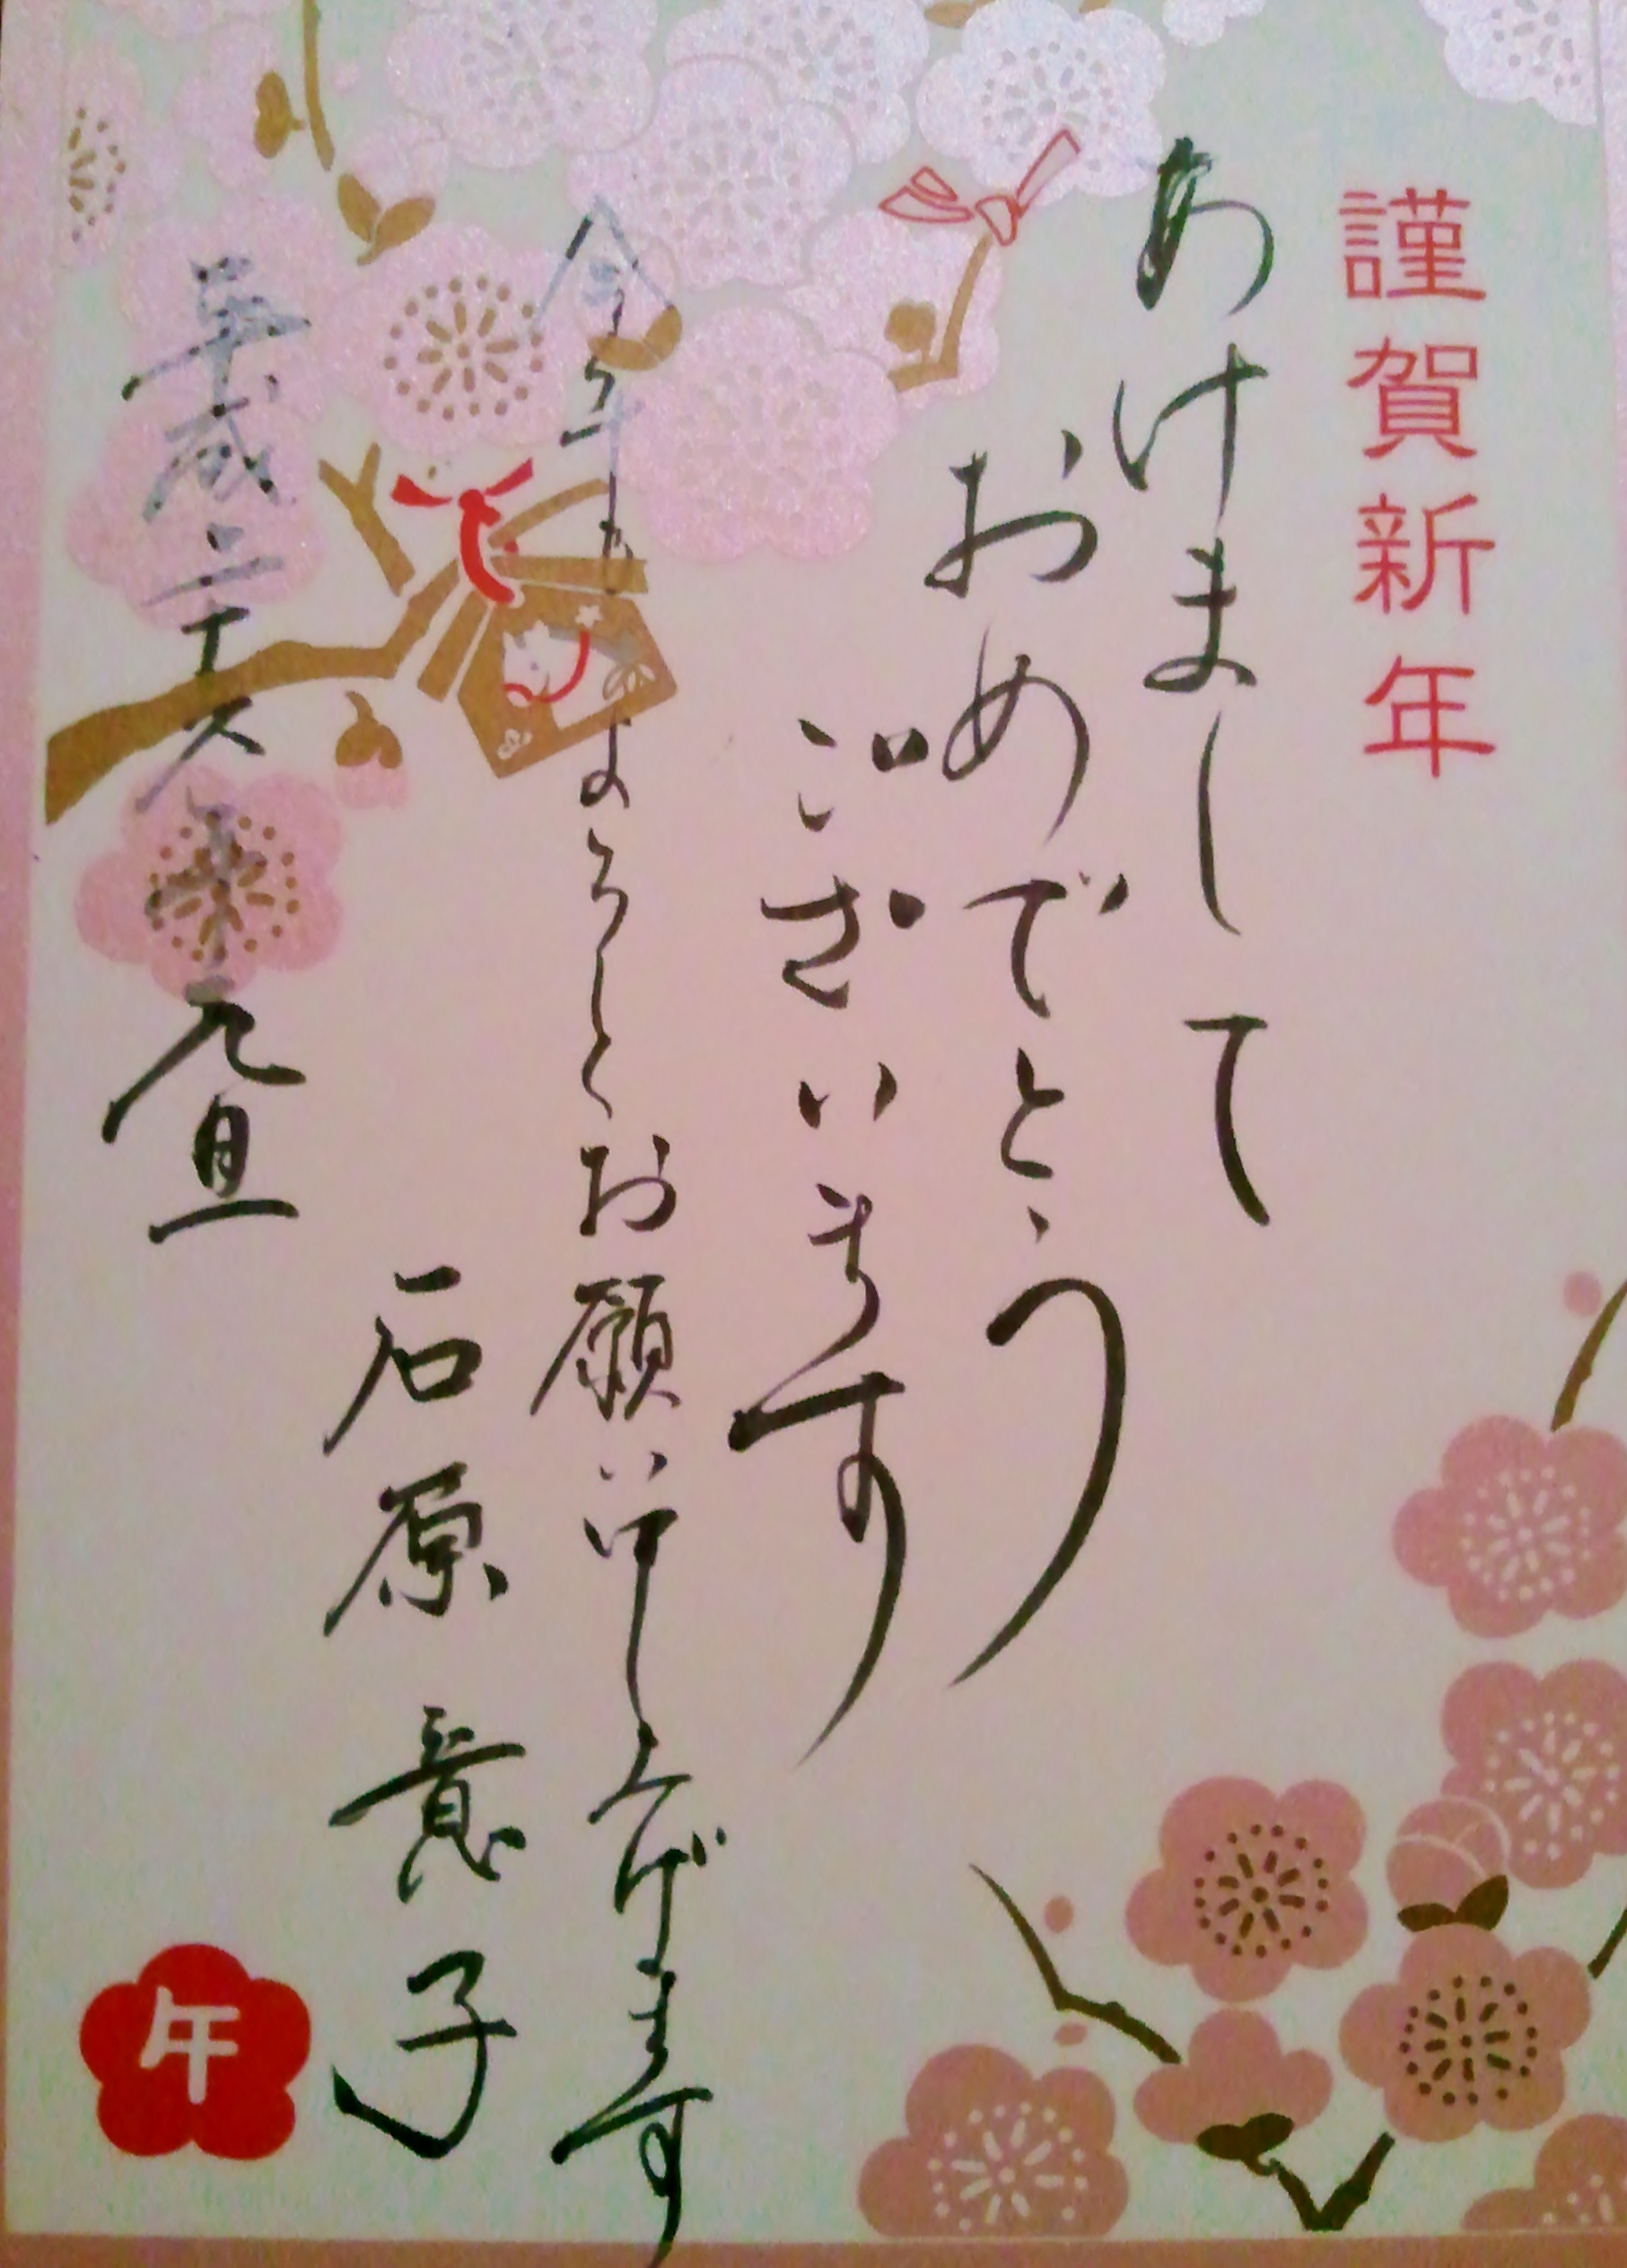 謹賀新年
あけまして
おめでとう
ございます
今年もよろしくお願い申し上げます
石原意子
平成二十六年元旦
午